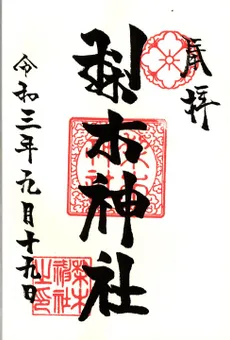 奉拝
梨木神社
令和三年九月十九日
梨木
神社
之印